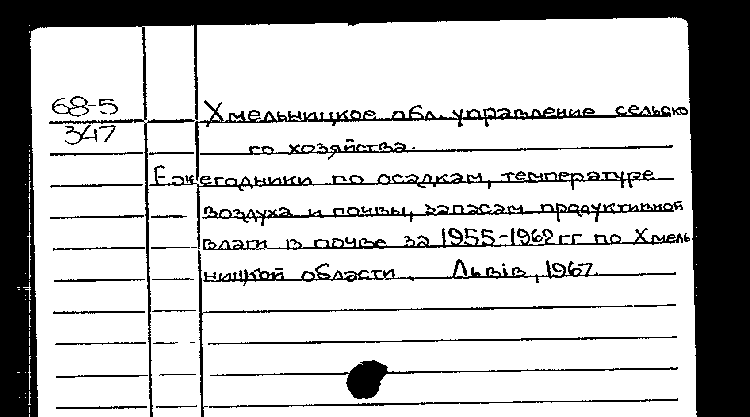 68-5
347
Хмельницкое обл. управление сельско
го хозяйства.
Ежегодники по осадкам, температуре
воздуха и почвы, запасам продуктивной
влаги в почве за 1955-1962 гг по Хмель-
ницкой области. Львів, 1967.